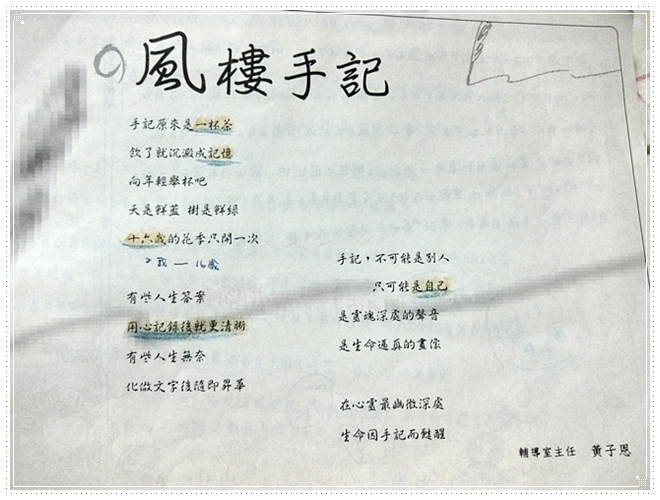 風樓手記
手記原來是一杯茶
飲了就沉澱成記憶
向年輕舉杯吧
天是鮮藍 樹是鮮綠
十六歲的花季只開一次
16歲
有些人生答案
用心記錄後就更清晰
有些人生無奈
化做文字後隨即昇華
手記，不可能是別人
只可能是自己
是靈魂深處的聲音
是生命逼真的畫像
在心靈最幽微深處
生命因手記而甦醒
輔導室主任 黃子恩